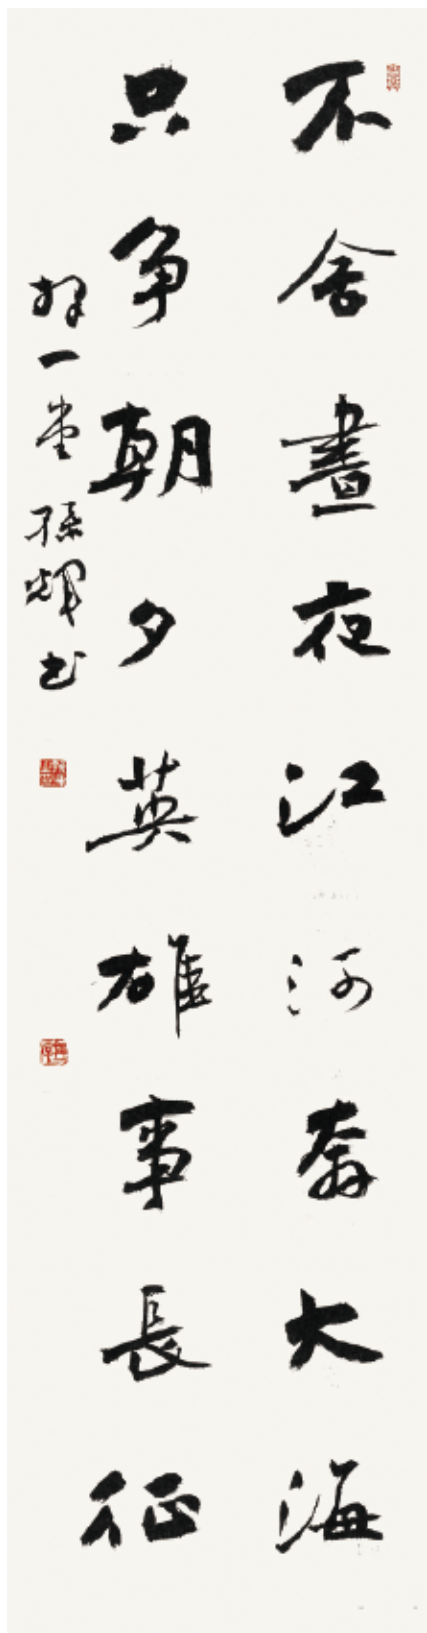 不舍晝夜江河奔大海
只争朝夕英雄事長征
一堂孫輝书